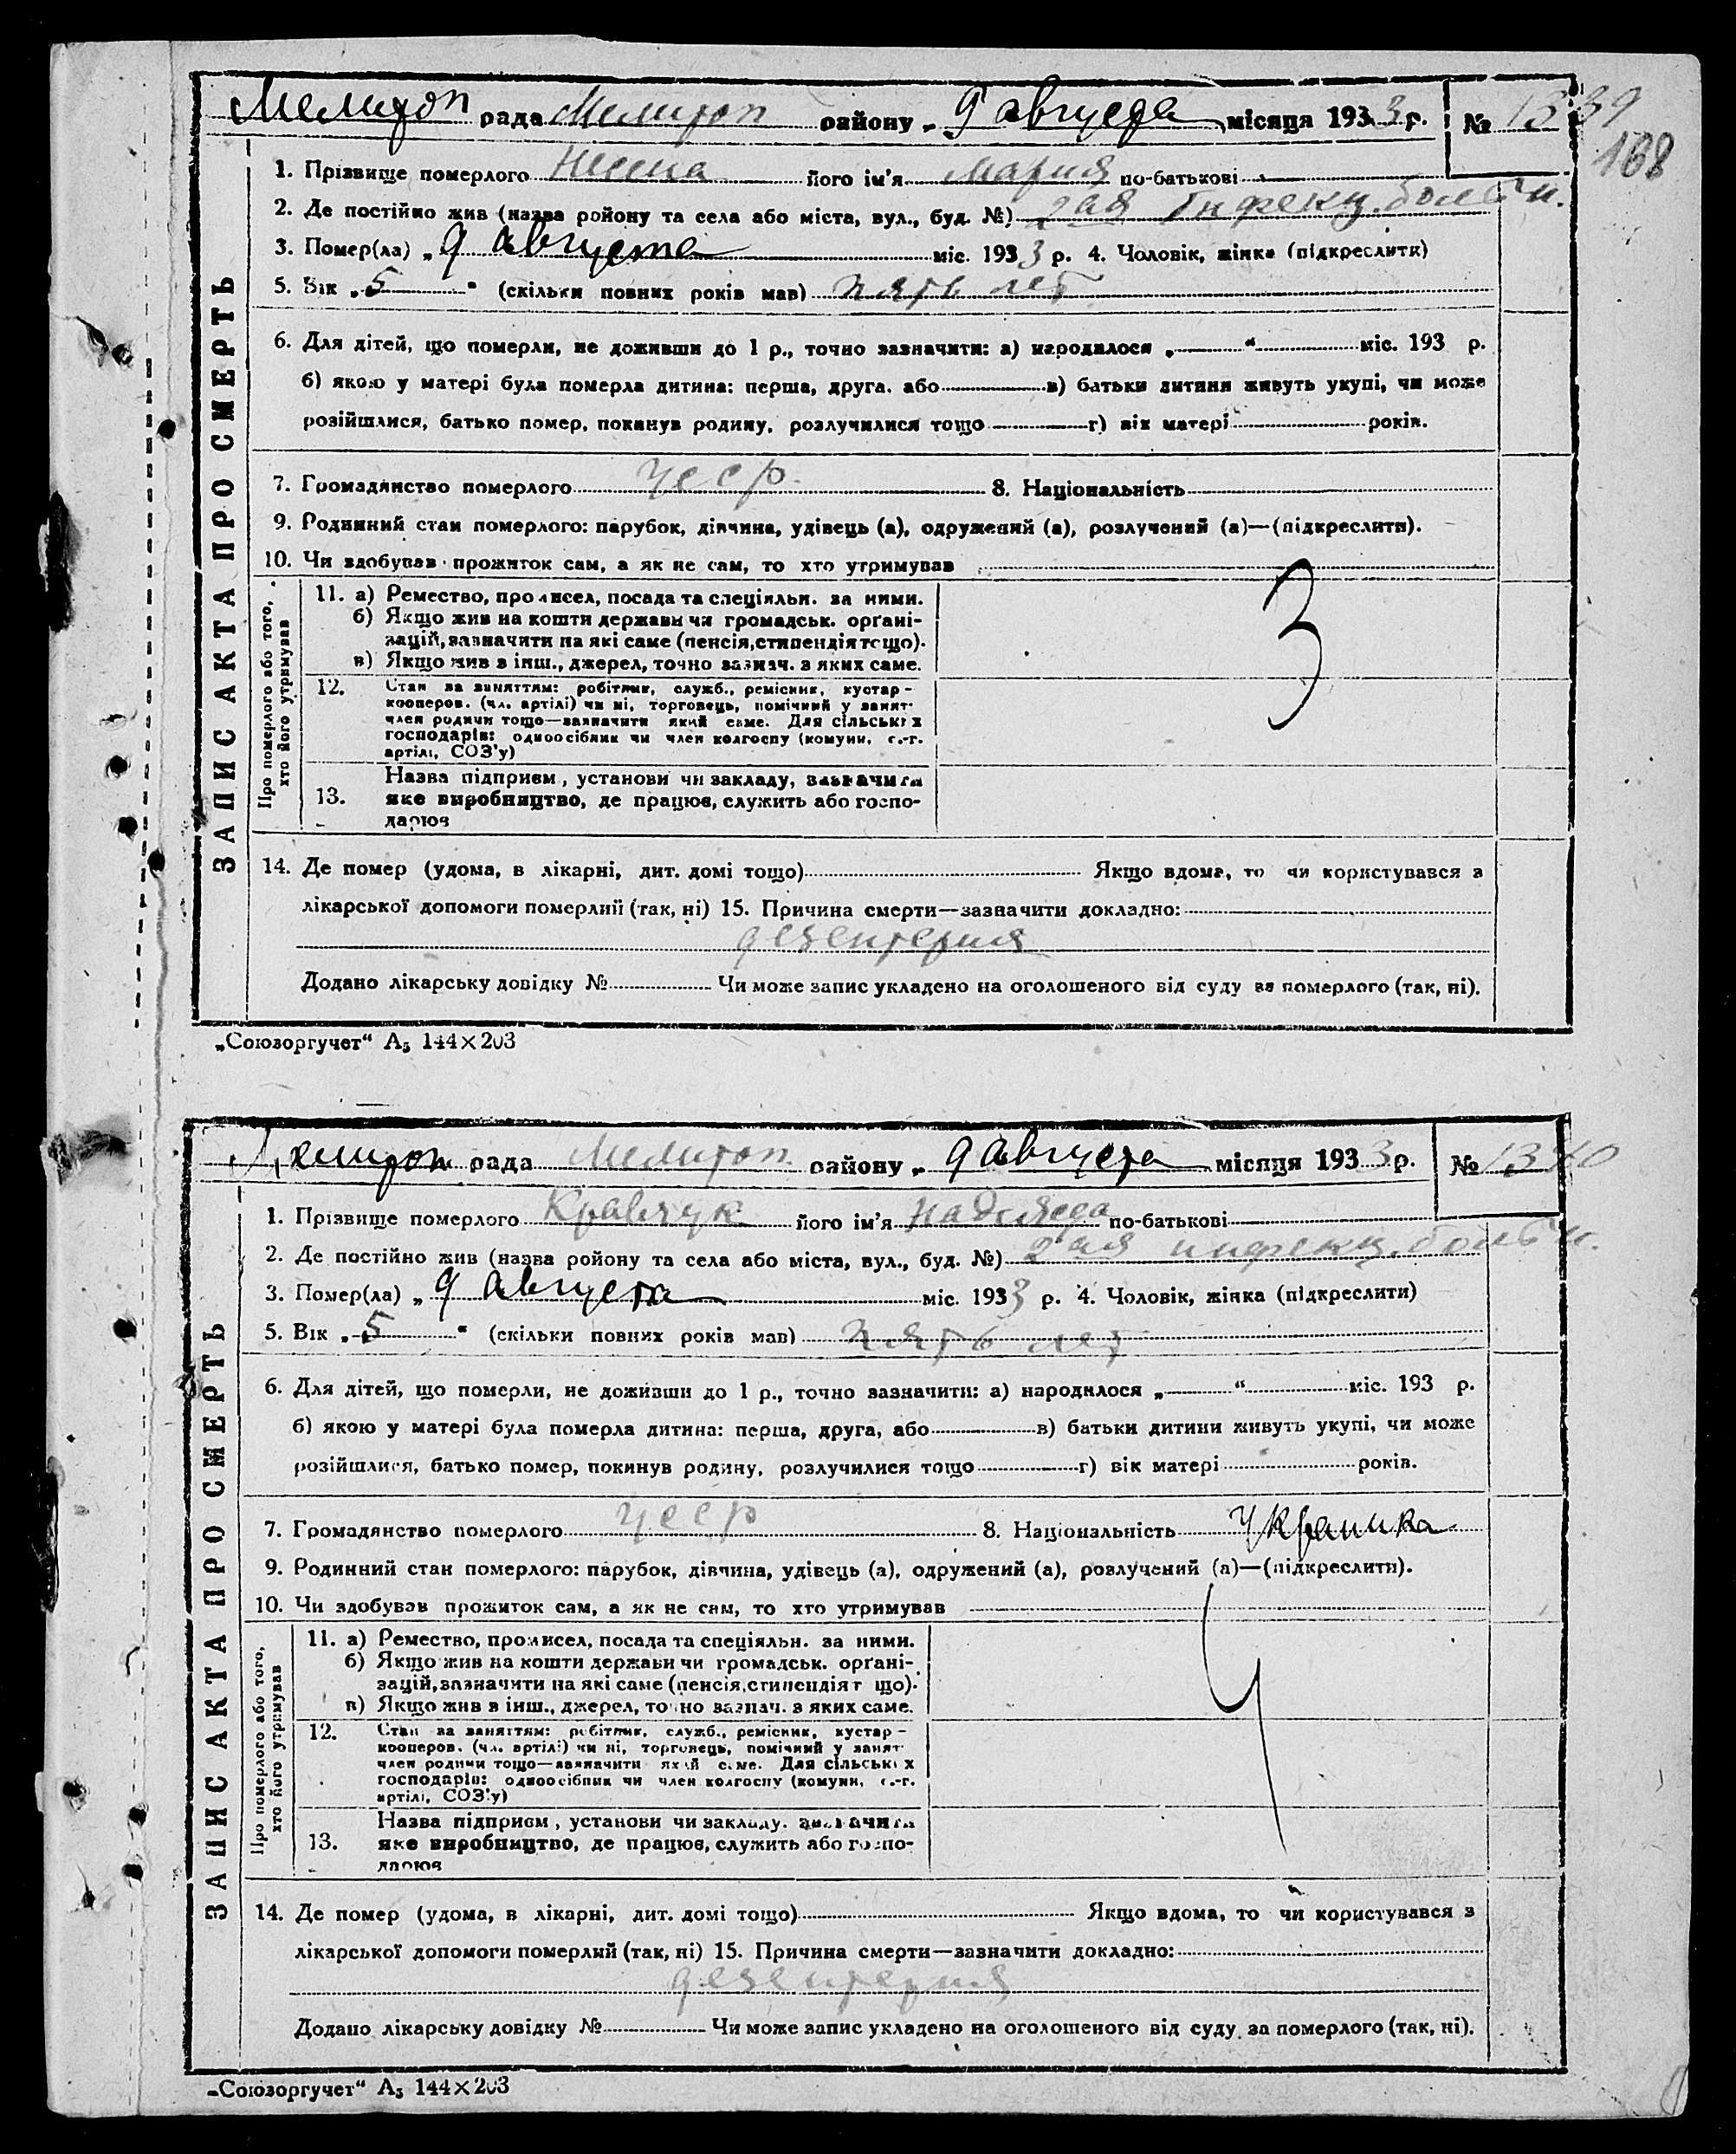 Мелитоп рада Мелитоп району „ 9 августа місяця 1933 р. № 1339
168
ЗАПИС АКТА ПРО СМЕРТЬ
1. Прізвище померлого його ім'я Мария по-батькові
2. Де постійно жив (назва ройону та села або міста, вул., буд. №) 2ая Инфекц. больн.
3. Помер(ла) „ 9 августа міс. 1933 р. 4. Чоловік, жінка (підкреслити)
5. Вік „ 5 “ (скільки повних років мав) пять лет
6. Для дітей, що померли, не доживши до 1 р., точно зазначити: а) народилося „ “ міс. 193 р.
б) якою у матері була померла дитина: перша, друга, або в) батьки дитини живуть укупі, чи може
розійшлися, батько помер, покинув родину, розлучилися тощо г) вік матері років.
7. Громадянство померлого УССР 8. Національність
9. Родинний стан померлого: парубок, дівчина, удівець (а), одружений (а), розлучений (а)—(підкреслити).
10. Чи здобував прожиток сам, а як не сам, то хто утримував
Про померлого або того,
хто його утримував
11. а) Ремество, промисел, посада та спеціяльн. за ними.
б) Якщо жив на кошти держави чи громадськ. органі-
зацій, зазначити на які саме (пенсія, стипендія тощо).
в) Якщо жив з інш., джерел, точно зазнач. з яких саме.
3
12. Стан за заняттям: робітник, служб., ремісник, кустар-
кооперов. (чл. артілі) чи ні, торговець, помічний у занят.
член родини тощо—зазначити який саме. Для сільських
господарів: одноосібник чи член колгоспу (комуни, с.-г.
артілі, СОЗ'у)
13. Назва підприєм., установи чи закладу, зазначити
яке виробництво, де працює, служить або госпо-
дарює
14. Де помер (удома, в лікарні, дит. домі тощо) Якщо вдома, то чи користувався з
лікарської допомоги померлий (так, ні) 15. Причина смерти—зазначити докладно:
дезентерия
Додано лікарську довідку № Чи може запис укладено на оголошеного від суду за померлого (так, ні).
„Союзоргучет“ А5 144×203
Мелитоп рада Мелитоп району „ 9 августа місяця 1933 р. № 1340
ЗАПИС АКТА ПРО СМЕРТЬ
1. Прізвище померлого Кравчук його ім'я Надежда по-батькові
2. Де постійно жив (назва ройону та села або міста, вул., буд. №) 2ая инфекц. больн.
3. Помер(ла) „ 9 августа міс. 1933 р. 4. Чоловік, жінка (підкреслити)
5. Вік „ 5 “ (скільки повних років мав) пять лет
6. Для дітей, що померли, не доживши до 1 р., точно зазначити: а) народилося „ “ міс. 193 р.
б) якою у матері була померла дитина: перша, друга, або в) батьки дитини живуть укупі, чи може
розійшлися, батько помер, покинув родину, розлучилися тощо г) вік матері років.
7. Громадянство померлого УССР 8. Національність Украинка
9. Родинний стан померлого: парубок, дівчина, удівець (а), одружений (а), розлучений (а)—(підкреслити).
10. Чи здобував прожиток сам, а як не сам, то хто утримував
Про померлого або того,
хто його утримував
11. а) Ремество, промисел, посада та спеціяльн. за ними.
б) Якщо жив на кошти держави чи громадськ. органі-
зацій, зазначити на які саме (пенсія, стипендія тощо).
в) Якщо жив з інш., джерел, точно зазнач. з яких саме.
Ч
12. Стан за заняттям: робітник, служб., ремісник, кустар-
кооперов. (чл. артілі) чи ні, торговець, помічний у занят.
член родини тощо—зазначити який саме. Для сільських
господарів: одноосібник чи член колгоспу (комуни, с.-г.
артілі, СОЗ'у)
13. Назва підприєм., установи чи закладу, зазначити
яке виробництво, де працює, служить або госпо-
дарює
14. Де помер (удома, в лікарні, дит. домі тощо) Якщо вдома, то чи користувався з
лікарської допомоги померлий (так, ні) 15. Причина смерти—зазначити докладно:
дезентерия
Додано лікарську довідку № Чи може запис укладено на оголошеного від суду за померлого (так, ні).
„Союзоргучет“ А5 144×203